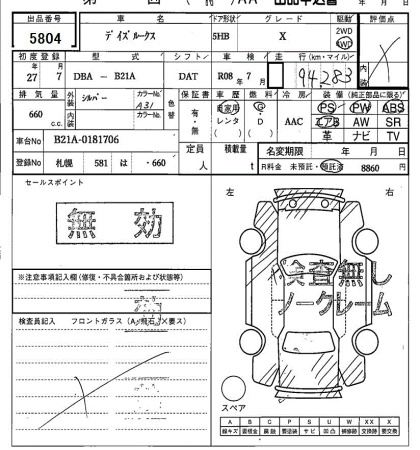 出品番号 車名 ドア形状 グレード 駆動 評価点
5804 デイズルークス 5HB X 2WD 4WD
初度登録 型式 シフト 車検 走行(km・マイル) 内装
27 7 DBA － B21A DAT R08年7月 94,283
排気量 外装 シルバー カラーNo. 色替 保証書 車歴 燃料 冷房 装備(純正部品に限る)
660 c.c. 内装 A31 カラーNo. 有・無 自家用 レンタ G D AAC PS PW ABS
エアB AW SR
革 ナビ TV
車台No B21A-0181706 定員 人 積載量 t 名変期限 年 月 日
登録No 札幌 581 は ・660 R料金 未預託・預託済 8860 円
セールスポイント 左 右
無効
検査無し
ノークレーム
※注意事項記入欄(修復・不具合箇所および状態等)
検査員記入 フロントガラス(A・飛石・X要ス)
スペア
A B C P S U W XX X
線キズ 要板金 腐蝕 要塗装 サビ 凹凸 補修跡 交換跡 要交換